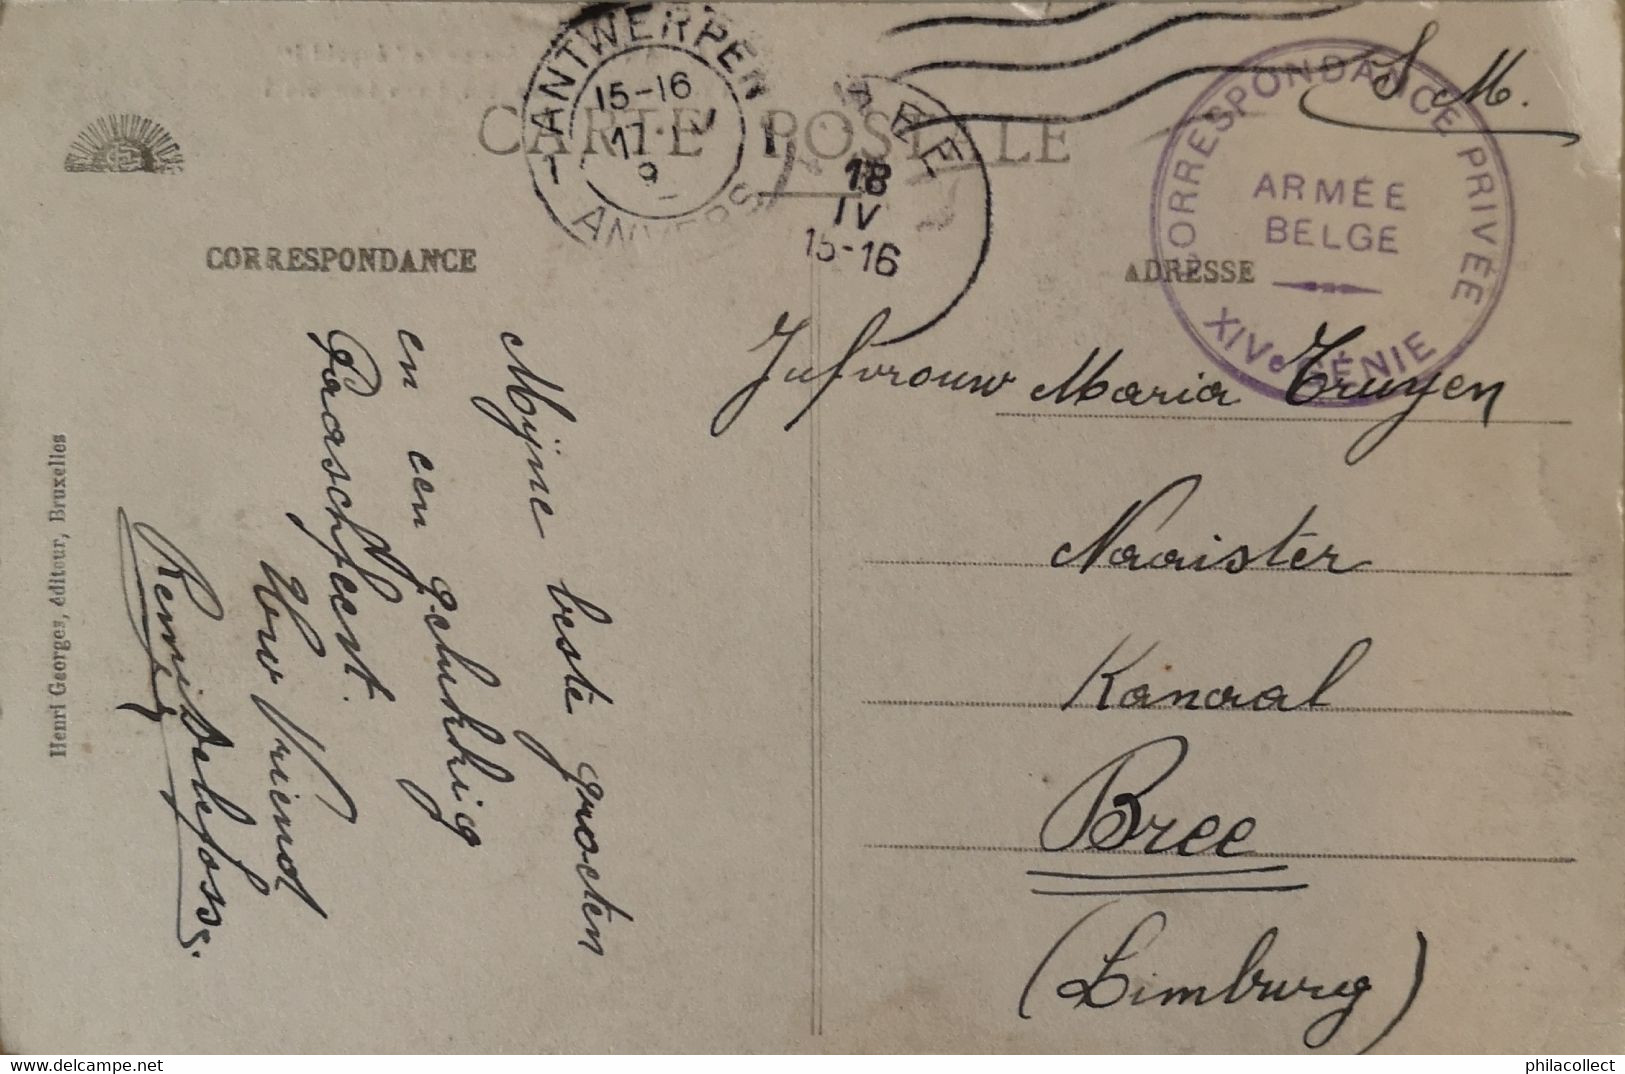 CARTE POSTALE
ANTWERPEN 1
15-16
17 IV
9
ANVERS
18
IV
15-16
S. M.
CORRESPONDANCE PRIVÉE
ARMÉE
BELGE
XIVe GÉNIE
CORRESPONDANCE
ADRESSE
Mijne beste groeten
en een gelukkig
Paaschfeest.
Uw Vriend
Remi Delefosse.
Jufvrouw Maria Truyen
Naaister
Kanaal
Bree
(Limburg)
Henri Georges, éditeur, Bruxelles
philacollect